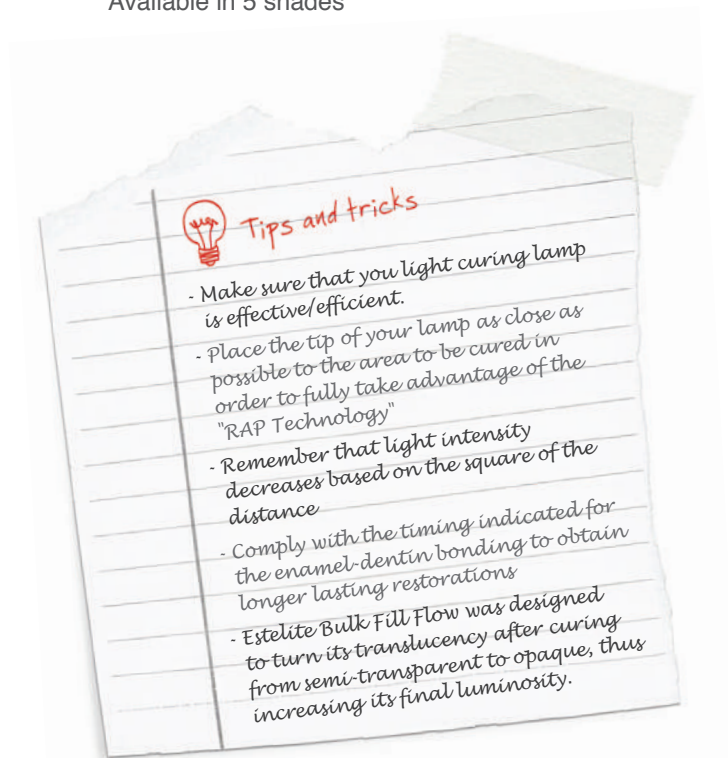 Available in 5 shades
Tips and tricks
- Make sure that you light curing lamp
is effective/efficient.
- Place the tip of your lamp as close as
possible to the area to be cured in
order to fully take advantage of the
"RAP Technology"
- Remember that light intensity
decreases based on the square of the
distance
- Comply with the timing indicated for
the enamel-dentin bonding to obtain
longer lasting restorations
- Estelite Bulk Fill Flow was designed
to turn its translucency after curing
from semi-transparent to opaque, thus
increasing its final luminosity.